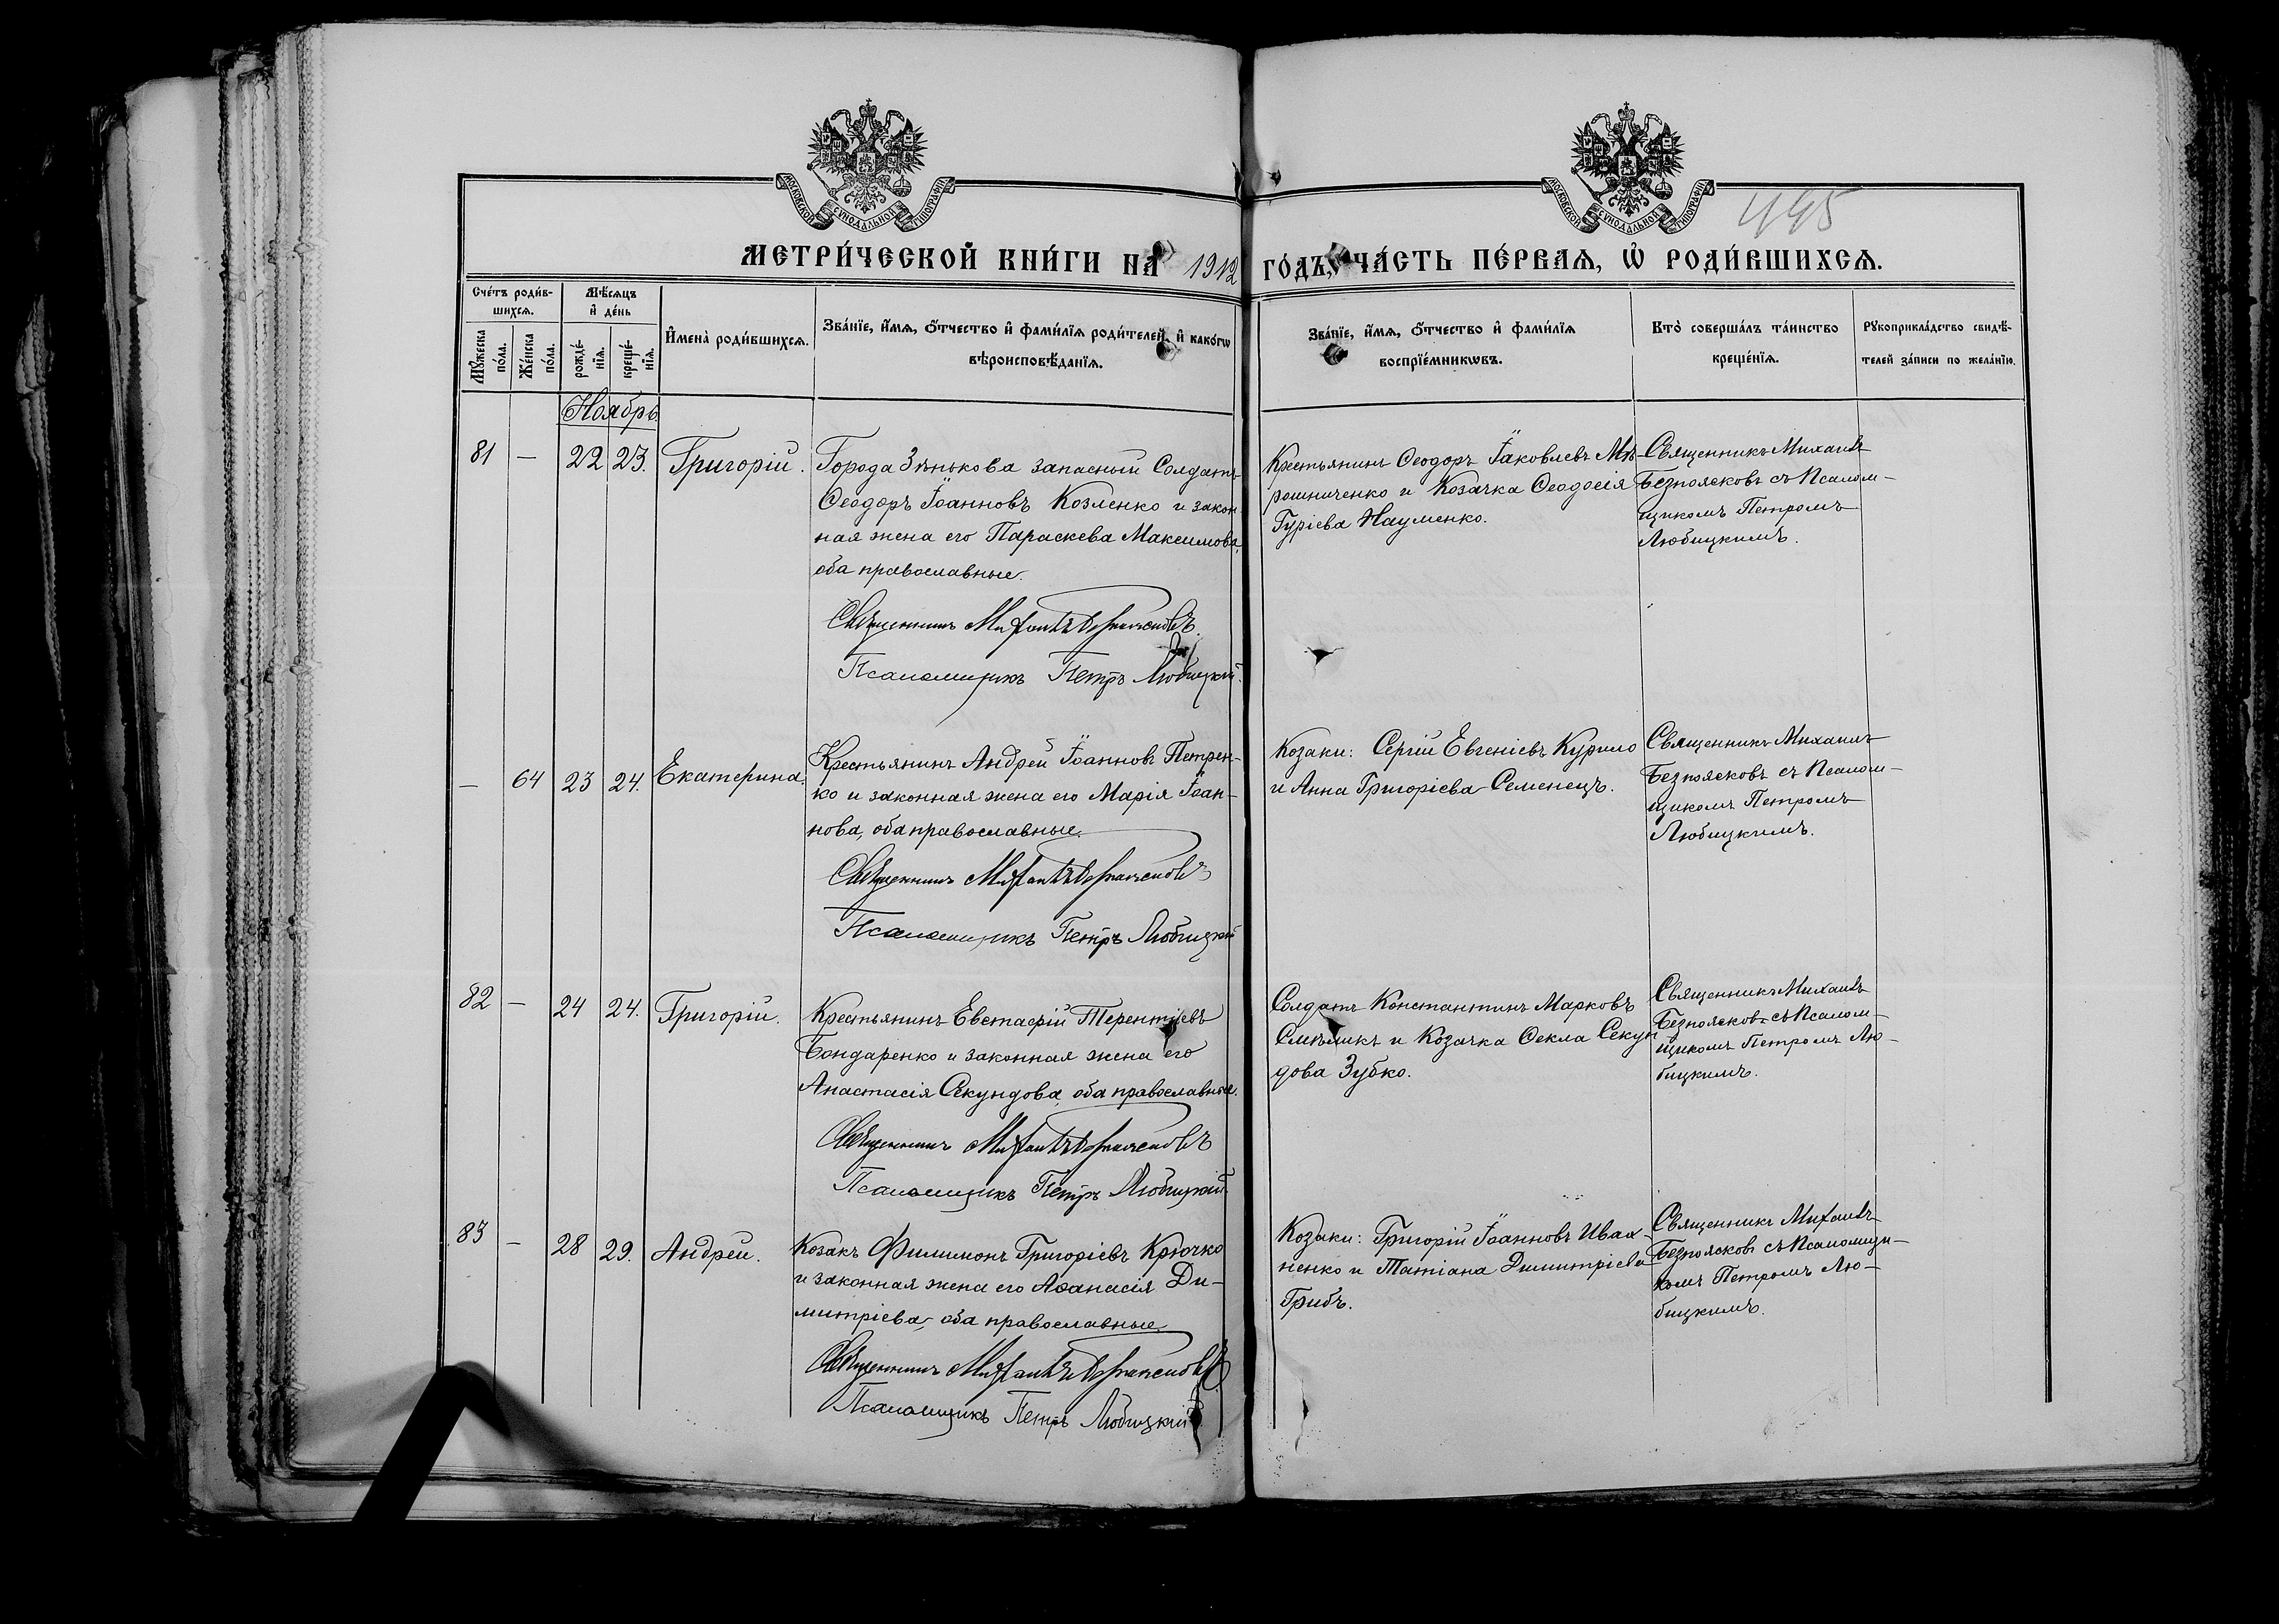 МОСКОВСКОЙ СѴНОДАЛЬНОЙ ТИПОГРАФІИ
МОСКОВСКОЙ СѴНОДАЛЬНОЙ ТИПОГРАФІИ
445
МЕТРИ́ЧЕСКОЙ КНИ́ГИ НА 1912 ГО́ДЪ, ЧА́СТЬ ПЕ́РВАѦ, Ѡ҆ РОДИ́ВШИХСѦ.
Сче́тъ роди́в-
шихсѧ.
Мꙋ́жеска по́ла.
Же́нска по́ла.
Мѣ́сѧцъ
и҆ де́нь
рожде́-нїѧ.
креще́-нїѧ.
И҆мена̀ роди́вшихсѧ.
Зва́нїе, и҆́мѧ, ѻ҆́тчество и҆ фами́лїѧ роди́телей, и҆ како́гѡ
вѣроисповѣ́данїѧ.
Зва́нїе, и҆́мѧ, ѻ҆́тчество и҆ фами́лїѧ
воспрїе́мникѡвъ.
Кто̀ соверша́лъ та́инство
креще́нїѧ.
Рꙋкоприкла́дство свидѣ́-
телей за́писи по жела́нїю.
Ноябрь.
81 — 22 23. Григорій.
Города Зѣнькова запасный Солдатъ
Ѳеодоръ Іоанновъ Козленко и закон-
ная жена его Параскева Максимова,
оба православные.
Священникъ Михаилъ Безпоясковъ.
Псаломщикъ Петръ Любицкій.
Крестьянинъ Ѳеодоръ Іаковлевъ Мѣ-
рошниченко и Козачка Ѳеодосія
Гуріева Науменко.
Священникъ Михаилъ
Безпоясковъ съ Псалом-
щикомъ Петромъ
Любицкимъ.
— 64 23 24. Екатерина.
Крестьянинъ Андрей Іоанновъ Петрен-
ко и законная жена его Марія Іоан-
нова, оба православные.
Священникъ Михаилъ Безпоясковъ
Псаломщикъ Петръ Любицкій
Козаки: Сергій Евгеніевъ Курило
и Анна Григоріева Семенецъ.
Священникъ Михаилъ
Безпоясковъ съ Псалом-
щикомъ Петромъ
Любицкимъ.
82 — 24 24. Григорій.
Крестьянинъ Евстафій Терентіевъ
Бондаренко и законная жена его
Анастасія Секундова, оба православные.
Священникъ Михаилъ Безпоясковъ
Псаломщикъ Петръ Любицкій.
Солдатъ Константинъ Марковъ
и Козачка Ѳекла Секун
дова Зубко.
Священникъ Михаилъ
Безпоясковъ съ Псалом-
щикомъ Петромъ Лю-
бицкимъ.
83 — 28 29. Андрей.
Козакъ Филимонъ Григоріевъ Крючко
и законная жена его Аѳанасія Ди-
митріева, оба православные.
Священникъ Михаилъ Безпоясковъ
Псаломщикъ Петръ Любицкій
Козаки: Григорій Іоанновъ Ивах-
ненко и Татіана Димитріева
Грибъ.
Священникъ Михаилъ
Безпоясковъ съ Псаломщи-
комъ Петромъ Лю-
бицкимъ.